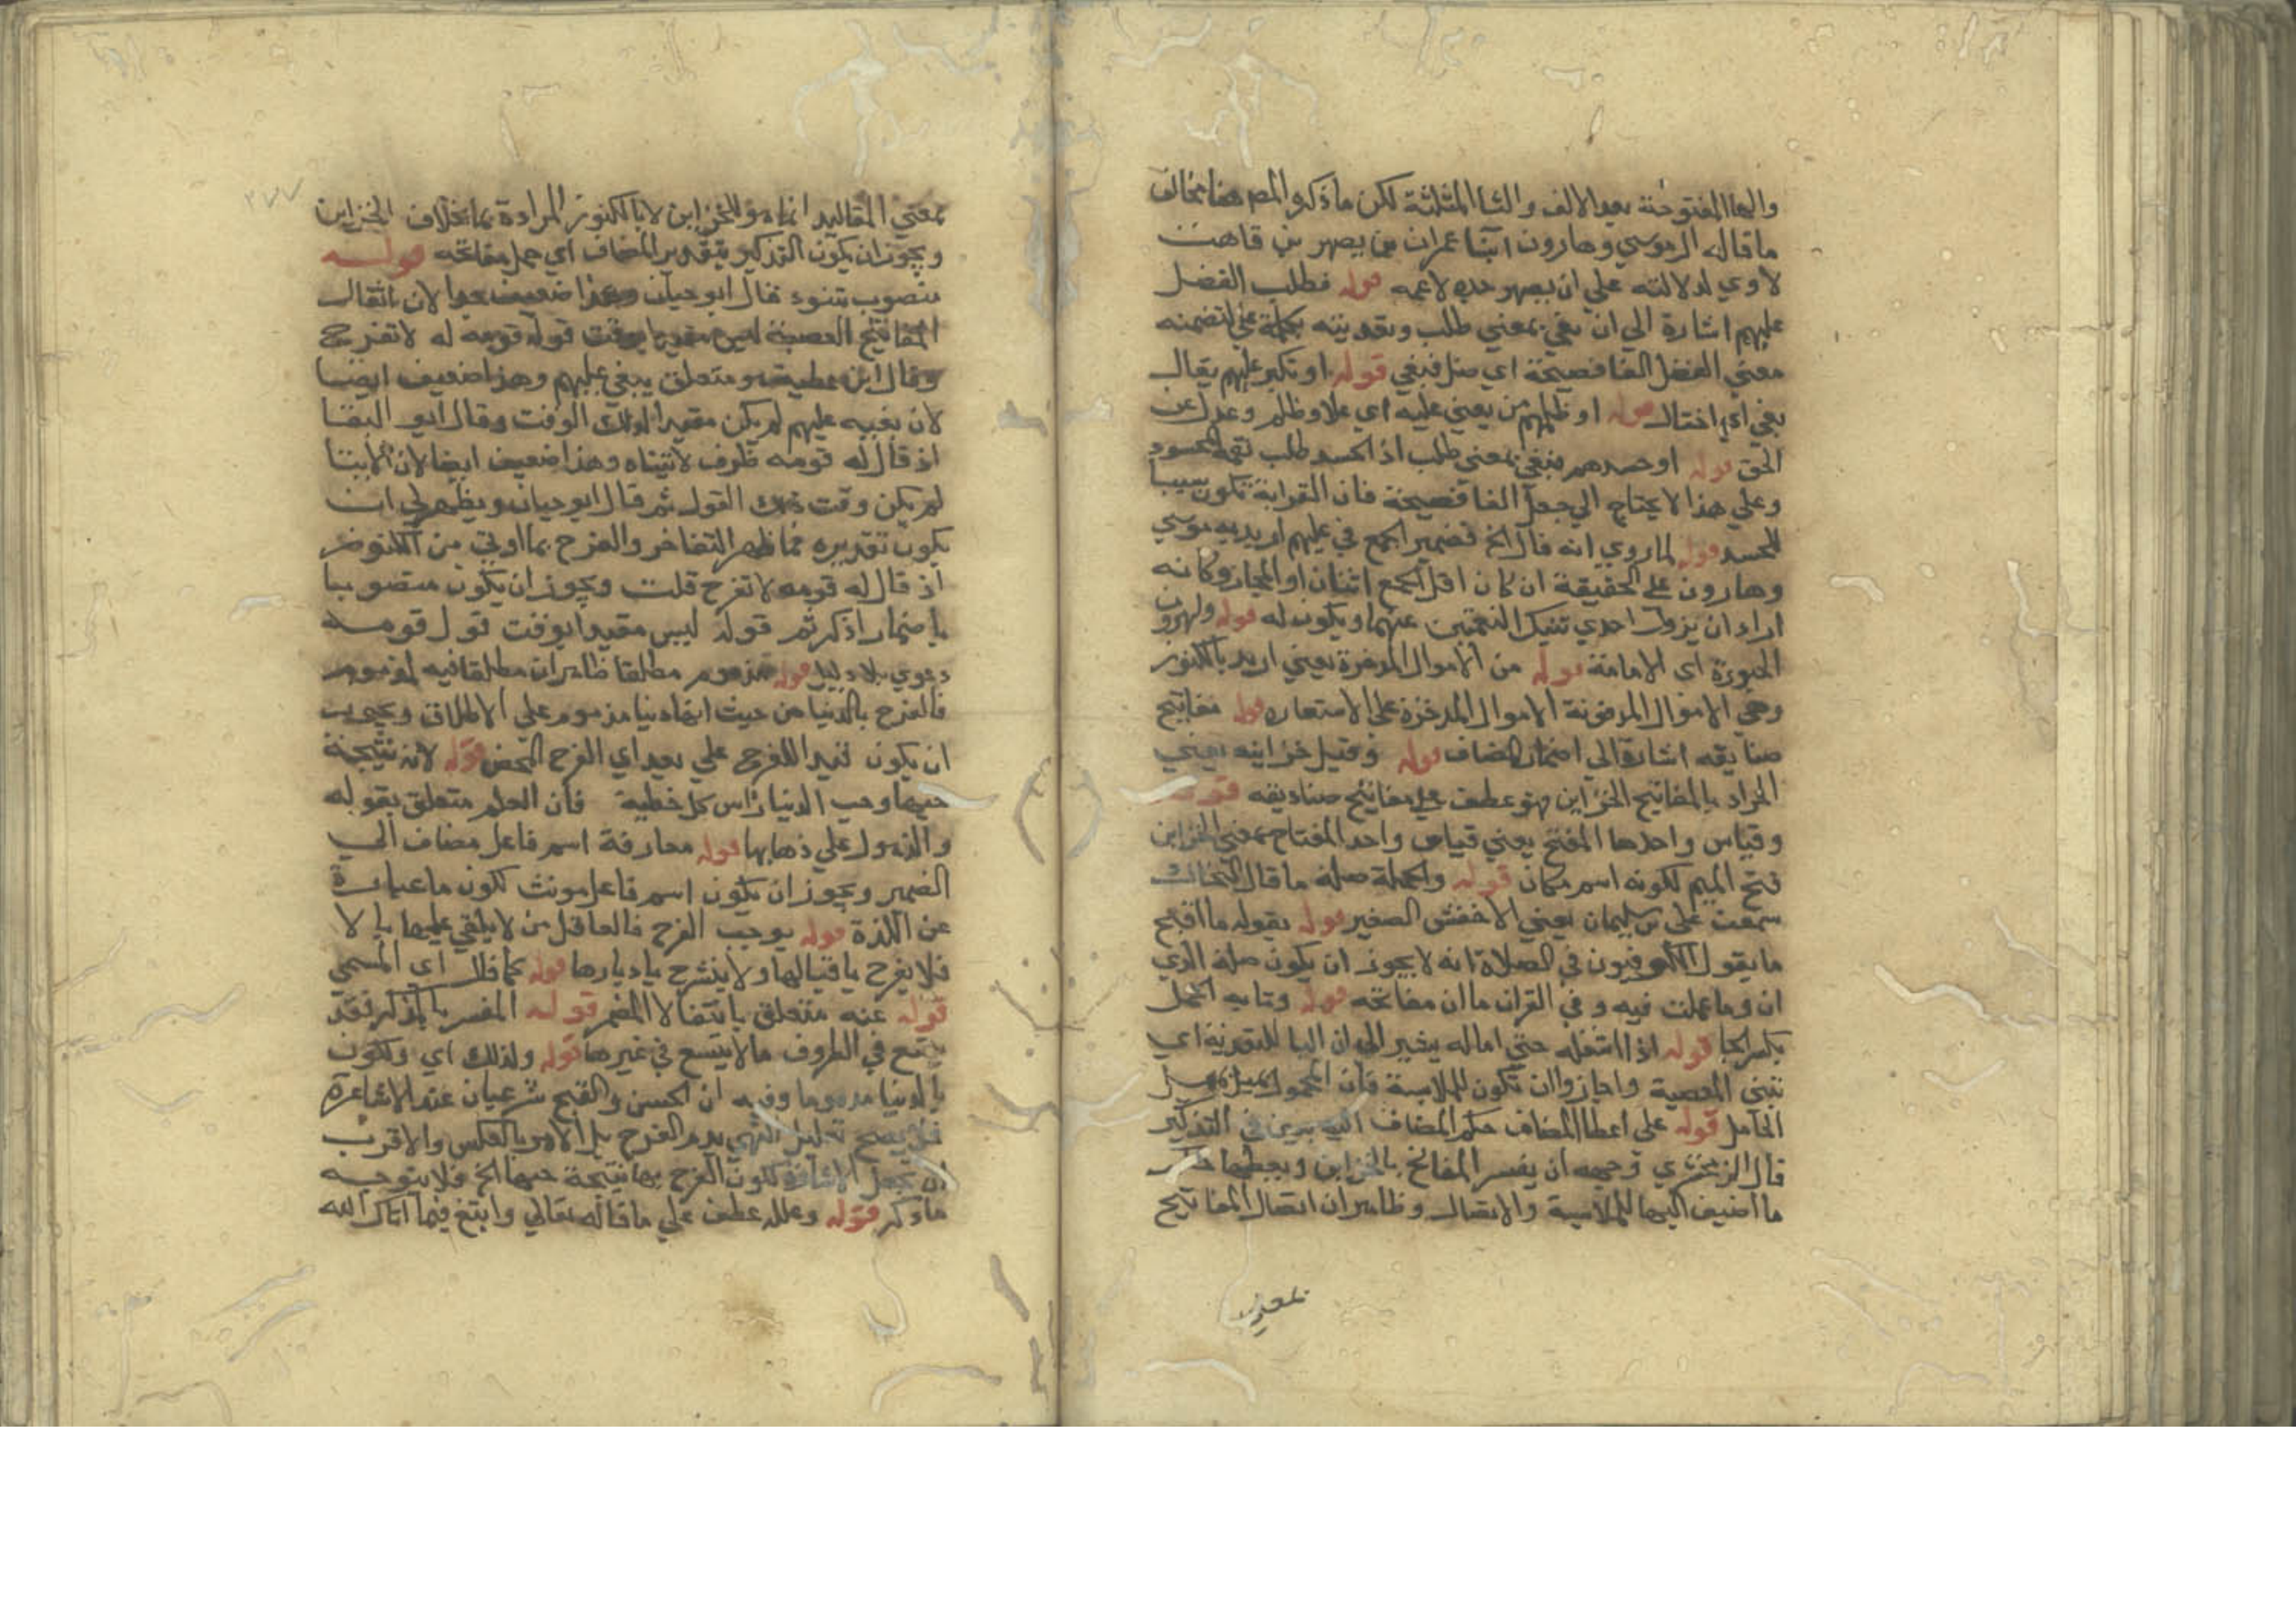 والهاالمفتوحة بعد الالف والثا المثلثة لكن ماذكره المص هنا مخالف
ما قاله ال موسي وهارون ابنا عمران بن يصهر بن قاهث
لاوي لدلالته علي ان يصهر جده لاعمه قوله فطلب الفضل
عليهم اشارة الي ان بغي بمعني طلب وتعديته بكلمة علي لتضمنه
معني الفضل الفا فصيحة اي ضل فبغي قوله او تكبر عليهم يقال
بغي اي اختال قوله او ظلمهم من بغي عليه اي علا وظلم وعدل عن
الحق قوله او حسدهم فبغي بمعني طلب اذ الحسد طلب نعمة المحسود
وعلي هذا لا يحتاج الي جعل الفا فصيحة فان القرابة تكون سببا
للحسد قوله لما روي انه قال الخ فضمير الجمع في عليهم اريد به موسي
وهارون علي الحقيقة ان كان اقل الجمع اثنان او المجاز وكانه
اراد ان يزول احدي تينك النعمتين عنهما ويكون له قوله ولهرون
الحبورة اي الامامة قوله من الاموال المدخرة يعني اريد بالكنوز
وهي الاموال المدفونة الاموال المدخرة علي الاستعارة قوله مفاتيح
صناديقه اشارة الي اضمار المضاف قوله وقيل خزاينه يعني
المراد بالمفاتيح الخزاين فهو عطف علي مفاتيح صناديقه قوله
وقياس واحدها المفتح يعني قياس واحد المفتاح بمعني الخزاين
فتح الميم لكونه اسم مكان قوله والجملة صلة ما قال النحاس
سمعت علي بن سليمان يعني الاخفش الصغير قوله يقول ما اقبح
ما يقول الكوفيون في الصلاة انه لا يجوز ان يكون صلة الذي
ان وما عملت فيه وفي القران ما ان مفاتحه قوله وناء به الحمل
بكسر الحا قوله اذا اثقله حتي اماله يشير الي ان البا للتعدية اي
تنئ العصبة واجازوا ان تكون للملابسة فان المحمول يميل بميل
الحامل قوله علي اعطا المضاف حكم المضاف اليه يريد في التذكير
قال الزمخشري وجهه ان يفسر المفاتح بالخزاين ويعطيها حكم
ما اضيف اليها للملابسة والاتصال وظاهر ان اتصال المفاتيح
بمعني
بمعني المقاليد انما هو بالخزاين لا بالكنوز المرادة بما بخلاف الخزاين
ويجوز ان يكون التذكير بتقدير المضاف اي حمل مفاتحه قوله
منصوب بتنوء قال ابو حيان وهذا ضعيف جدا لان اثقال
المفاتيح العصبة ليس مقيدا بوقت قول قومه له لا تفرح
وقال ابن عطية متعلق ببغي عليهم وهذا ضعيف ايضا
لان بغيه عليهم لم يكن مقيدا بذلك الوقت وقال ابو البقا
اذ قال له قومه ظرف لاتيناه وهذا ضعيف ايضا لان الايتا
لم يكن وقت ذلك القول ثم قال ابو حيان ويظهر لي ان
يكون تقديره فاظهر التفاخر والفرح بما اوتي من الكنوز
اذ قال له قومه لا تفرح قلت ويجوز ان يكون منصوبا
باضمار اذكر ثم قوله ليس مقيدا بوقت قول قومه
دعوي بلا دليل قوله مذموم مطلقا ظاهر ان مطلقا فيه لمذموم
فالفرح بالدنيا من حيث انها دنيا مذموم علي الاطلاق ويجوز
ان يكون قيدا للفرح علي بعد اي الفرح المحض قوله لانه نتيجة
حبها وحب الدنيا راس كل خطية فان العلم متعلق بقوله
والذهول علي ذهابها قوله مفارقة اسم فاعل مضاف الي
الضمير ويجوز ان يكون اسم فاعل مونث لكون ما عبارة
عن اللذة قوله يوجب الفرح فالعاقل من لا يلقي عليها بالا
فلا يفرح باقبالها ولا ينشرح بادبارها قوله كما قال اي المتنبي
قوله عنه متعلق بانتقالا المضمر قوله المفسر بالمذكر فقد
يتسع في الظروف ما لا يتسع في غيرها قوله ولذلك اي ولكون
بالدنيا مذموما وفيه ان الحسن والقبح شرعيان عند الاشاعرة
فلا يصح تعليل النهي بذم الفرح بل الامر بالعكس والاقرب
ان تجعل الاشارة لكون الفرح بها نتيجة حبها الخ فلا يتوجه
ما ذكر قوله وعلله عطف علي ما قاله تعالي وابتغ فيما اتاك الله